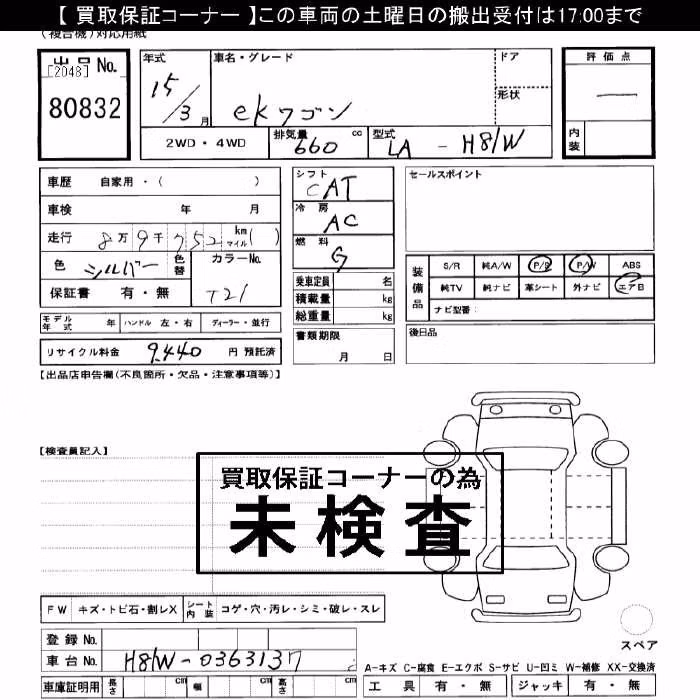 【 買取保証コーナー 】この車両の土曜日の搬出受付は17:00まで
(複合機)対応用紙
出品No.
[2048]
80832
年式
15/3月
車名・グレード
ekワゴン
ドア
形状
評価点
内装
2WD・4WD
排気量 660 cc
型式 LA - H81W
車歴 自家用・( )
車検 年 月
走行 8万9千752 km マイル( )
色 シルバー 色替
カラーNo. T21
保証書 有・無
モデル年式 年 ハンドル 左・右 ディーラー・並行
リサイクル料金 9,440 円 預託済
シフト CAT
冷房 AC
燃料 G
乗車定員 名
積載量 kg
総重量 kg
書類期限 月 日
セールスポイント
装備品
S/R 純A/W P/S P/W ABS
純TV 純ナビ 革シート 外ナビ エアB
ナビ型番:
後日品
【出品店申告欄(不良箇所・欠品・注意事項等)】
【検査員記入】
買取保証コーナーの為
未検査
FW キズ・トビ石・割レX シート内装 コゲ・穴・汚レ・シミ・破レ・スレ
登録 No.
車台 No. H81W-0363137
車庫証明用 長さ cm 幅 cm 高さ cm
スペア
A-キズ C-腐食 E-エクボ S-サビ U-凹ミ W-補修 XX-交換済
工具 有・無 ジャッキ 有・無